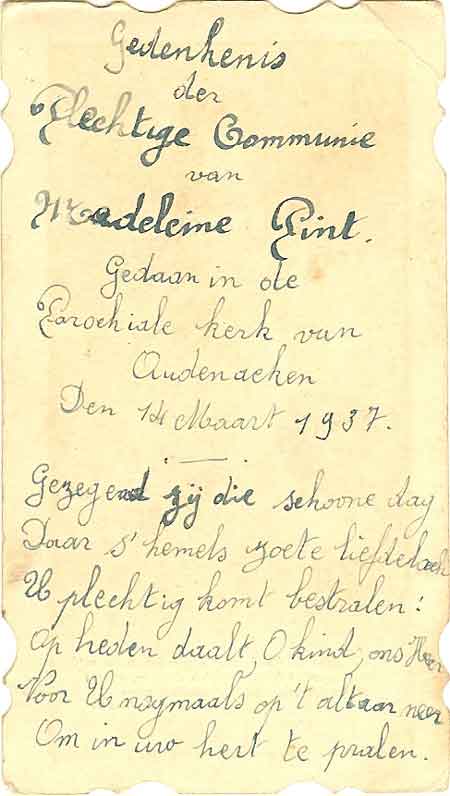 Gedenkenis
der
Plechtige Communie
van
Madeleine Pint.
Gedaan in de
Parochiale kerk van
Audenaeken
Den 14 Maart 1937.
Gezegend zij die schoone dag
Daar s'hemels zoete liefdelach
U plechtig komt bestralen:
Op heden daalt, O kind, ons Heer
Voor U nogmaals op 't altaar neer
Om in uw hert te pralen.